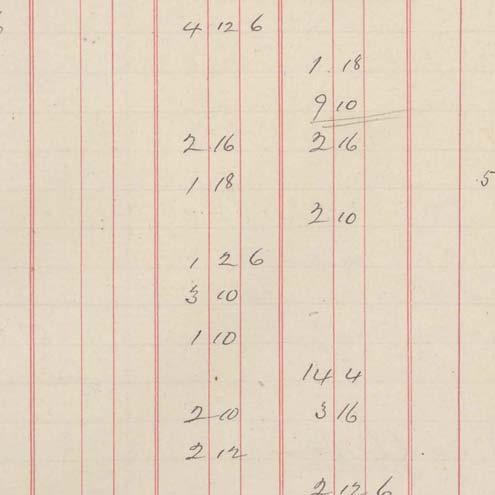 4 12 6
1 18
9 10
2 16 2 16
1 18 5
2 10
1 2 6
3 10
1 10
14 4
2 10 3 16
2 12
2 12 6